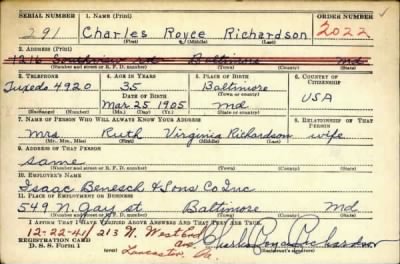 SERIAL NUMBER 1. NAME (Print) ORDER NUMBER
291 Charles Royce Richardson 2022
(First) (Middle) (Last)
2. ADDRESS (Print)
1216 Baltimore Md
(Number and street or R. F. D. number) (Town) (County) (State)
3. TELEPHONE 4. AGE IN YEARS 5. PLACE OF BIRTH 6. COUNTRY OF CITIZENSHIP
Tuxedo 4920 35 Baltimore
DATE OF BIRTH (Town or county)
Mar. 25 1905 Md USA
(Exchange) (Number) (Mo.) (Day) (Yr.) (State or country)
7. NAME OF PERSON WHO WILL ALWAYS KNOW YOUR ADDRESS 8. RELATIONSHIP OF THAT PERSON
Mrs Ruth Virginia Richardson wife
(Mr., Mrs., Miss) (First) (Middle) (Last)
9. ADDRESS OF THAT PERSON
same
(Number and street or R. F. D. number) (Town) (County) (State)
10. EMPLOYER'S NAME
Isaac Benesch & Sons Co Inc
11. PLACE OF EMPLOYMENT OR BUSINESS
549 N. Gay st Baltimore Md
(Number and street or R. F. D. number) (Town) (County) (State)
I AFFIRM THAT I HAVE VERIFIED ABOVE ANSWERS AND THAT THEY ARE TRUE.
12-22-41 213 N. West End ave
REGISTRATION CARD
D. S. S. Form 1 Lancaster, Pa. Charles Royce Richardson
(Registrant's signature)